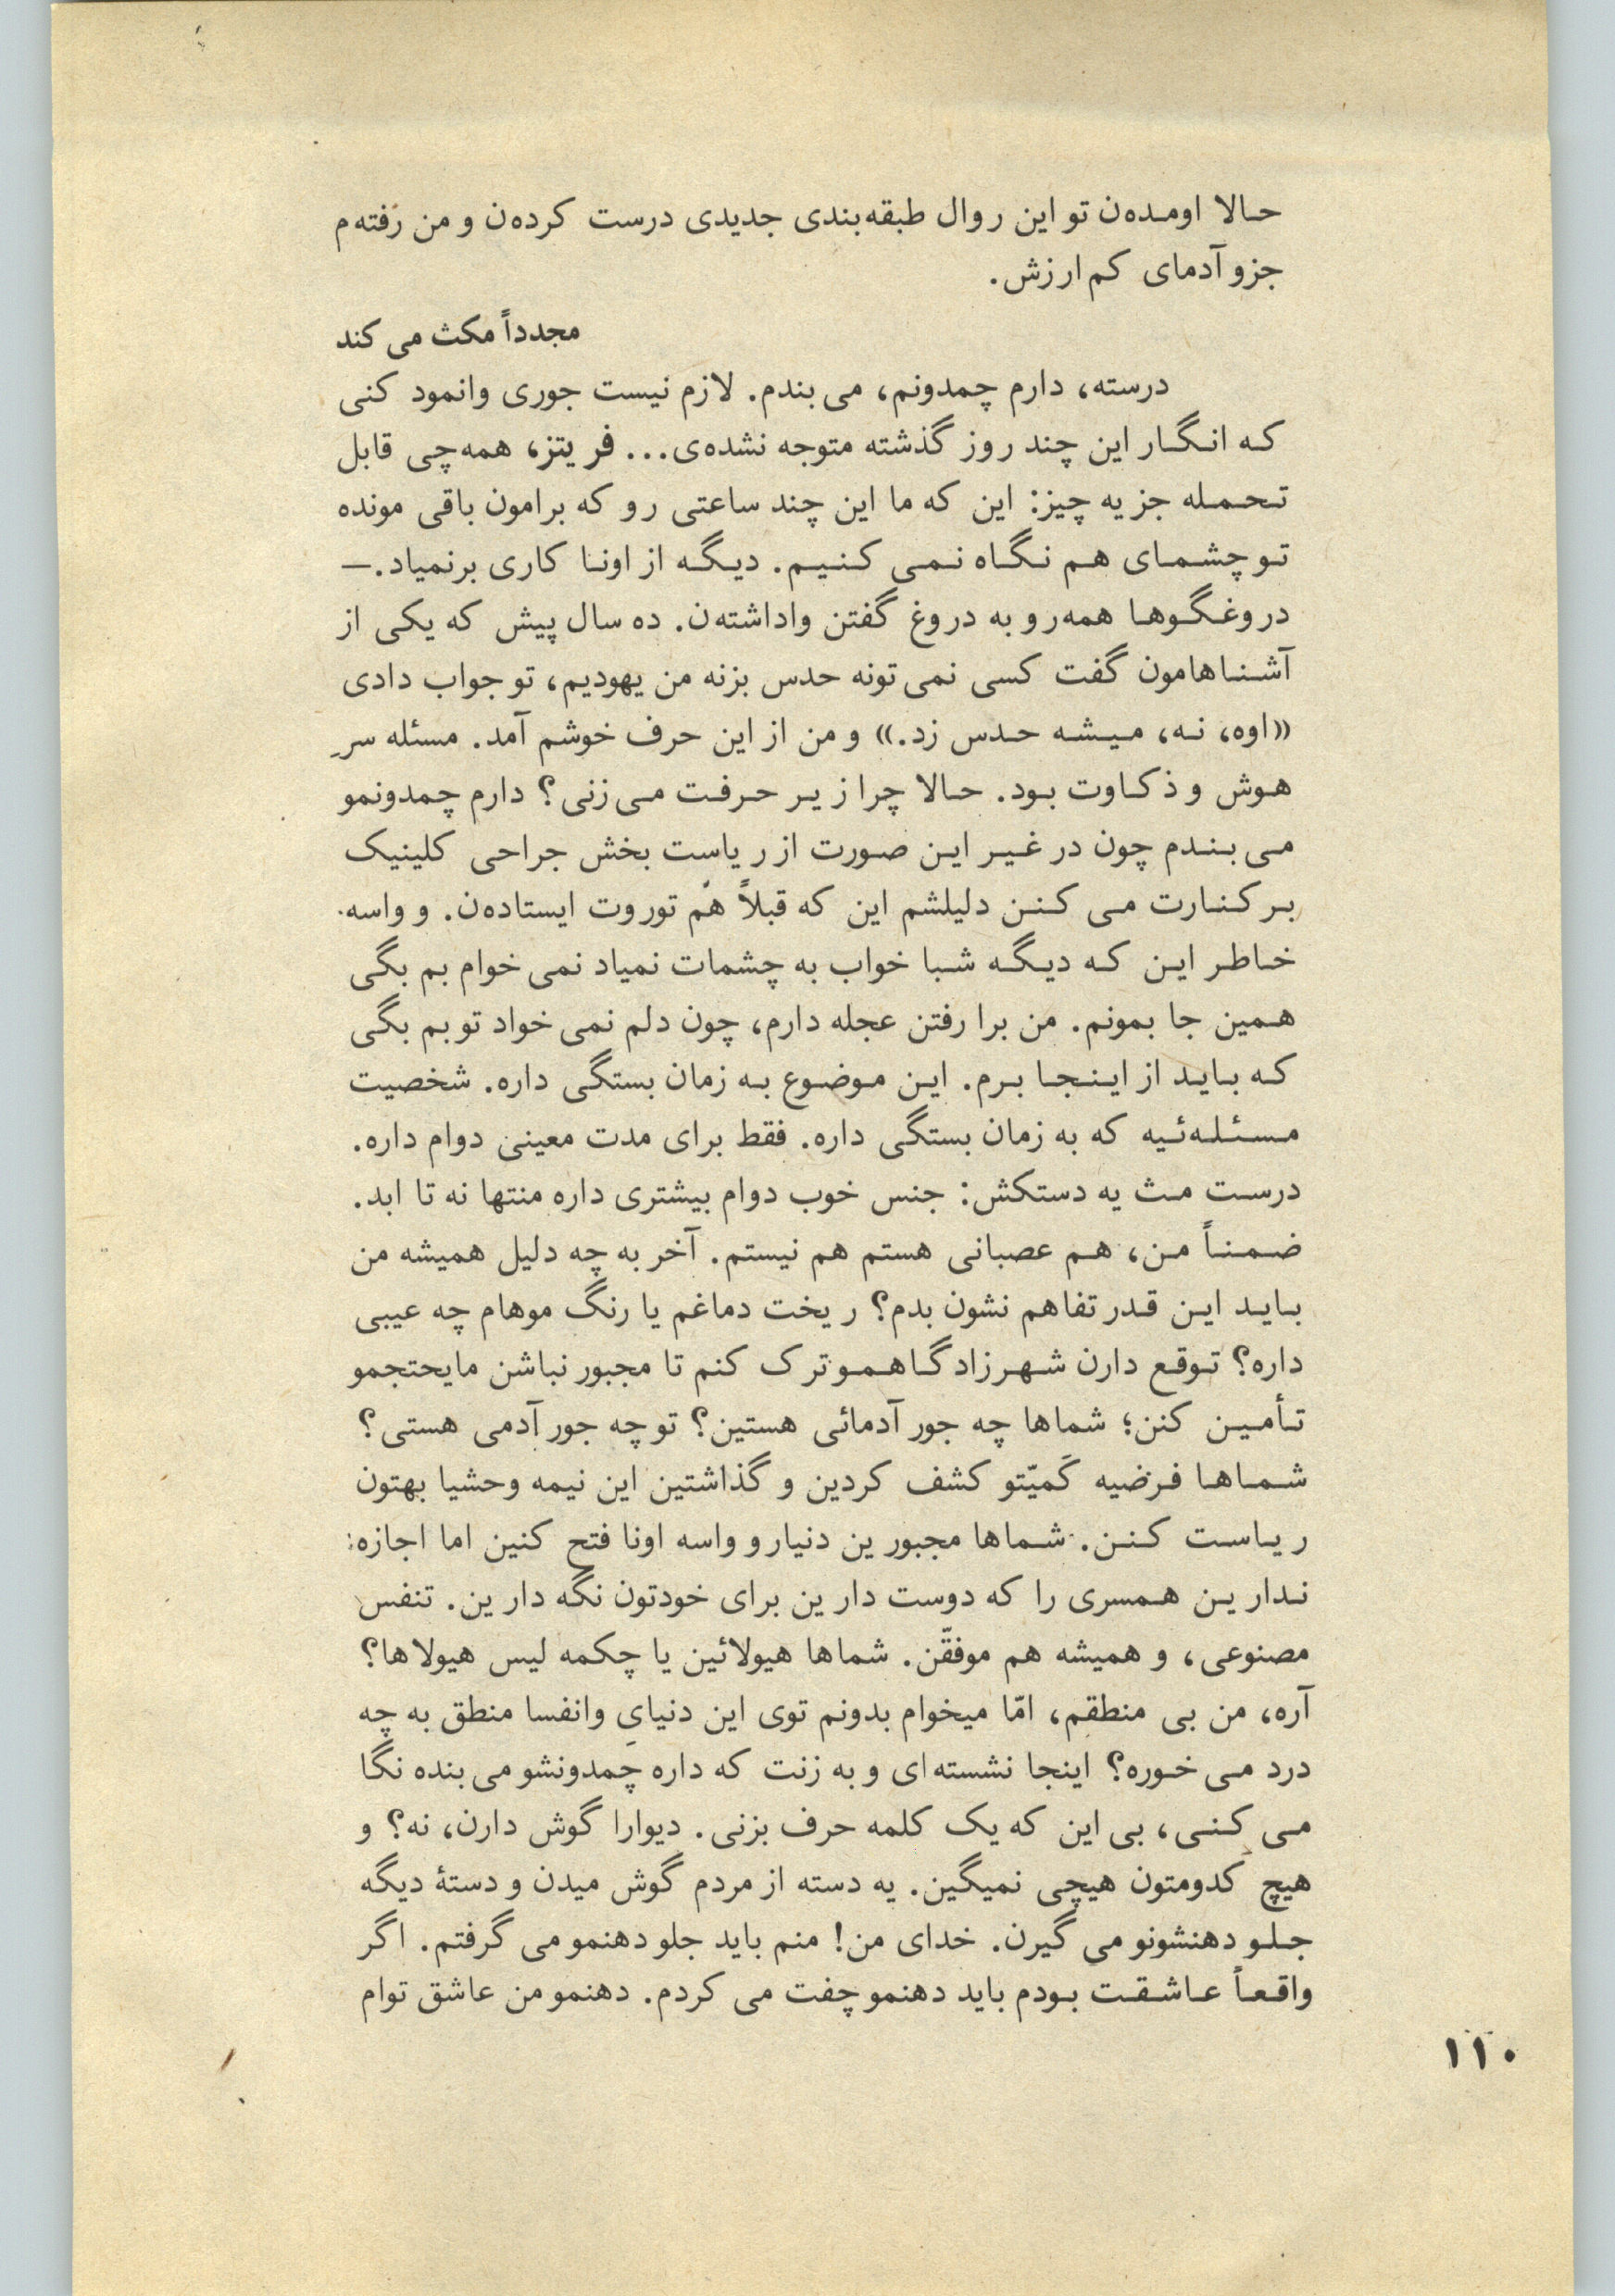 حالا اومده‌ن تو این روال طبقه‌بندی جدیدی درست کرده‌ن و من رفته‌م
جزو آدمای کم ارزش.
مجدداً مکث می کند
درسته، دارم چمدونم، می بندم. لازم نیست جوری وانمود کنی
که انگار این چند روز گذشته متوجه نشده‌ی... فریتز، همه چی قابل
تحمله جز یه چیز: این که ما این چند ساعتی رو که برامون باقی مونده
تو چشمای هم نگاه نمی کنیم. دیگه از اونا کاری برنمیاد.—
دروغگوها همه رو به دروغ گفتن واداشته‌ن. ده سال پیش که یکی از
آشناهامون گفت کسی نمی تونه حدس بزنه من یهودیم، تو جواب دادی
«اوه، نه، میشه حدس زد.» و من از این حرف خوشم آمد. مسئله سرِ
هوش و ذکاوت بود. حالا چرا زیر حرفت می زنی؟ دارم چمدونمو
می بندم چون در غیر این صورت از ریاست بخش جراحی کلینیک
برکنارت می کنن دلیلشم این که قبلاً هم تو روت ایستاده‌ن. و واسه
خاطر این که دیگه شبا خواب به چشمات نمیاد نمی خوام بم بگی
همین جا بمونم. من برا رفتن عجله دارم، چون دلم نمی خواد تو بم بگی
که باید از اینجا برم. این موضوع به زمان بستگی داره. شخصیت
مسئله‌ئیه که به زمان بستگی داره. فقط برای مدت معینی دوام داره.
درست مث یه دستکش: جنس خوب دوام بیشتری داره منتها نه تا ابد.
ضمناً من، هم عصبانی هستم هم نیستم. آخر به چه دلیل همیشه من
باید این قدر تفاهم نشون بدم؟ ریخت دماغم یا رنگ موهام چه عیبی
داره؟ توقع دارن شهر زادگاهمو ترک کنم تا مجبور نباشن مایحتجمو
تأمین کنن؛ شماها چه جور آدمائی هستین؟ تو چه جور آدمی هستی؟
شماها فرضیه کَمیّتو کشف کردین و گذاشتین این نیمه وحشیا بهتون
ریاست کنن. شماها مجبورین دنیارو واسه اونا فتح کنین اما اجازه
ندارین همسری را که دوست دارین برای خودتون نگه دارین. تنفس
مصنوعی، و همیشه هم موفقّن. شماها هیولائین یا چکمه لیس هیولاها؟
آره، من بی منطقم، امّا میخوام بدونم توی این دنیایِ وانفسا منطق به چه
درد می خوره؟ اینجا نشسته‌ای و به زنت که داره چمدونشو می بنده نگا
می کنی، بی این که یک کلمه حرف بزنی. دیوارا گوش دارن، نه؟ و
هیچ کدومتون هیچی نمیگین. یه دسته از مردم گوش میدن و دستهٔ دیگه
جلو دهنشونو می گیرن. خدای من! منم باید جلو دهنمو می گرفتم. اگر
واقعاً عاشقت بودم باید دهنمو چفت می کردم. دهنمو من عاشق توام
۱۱۰